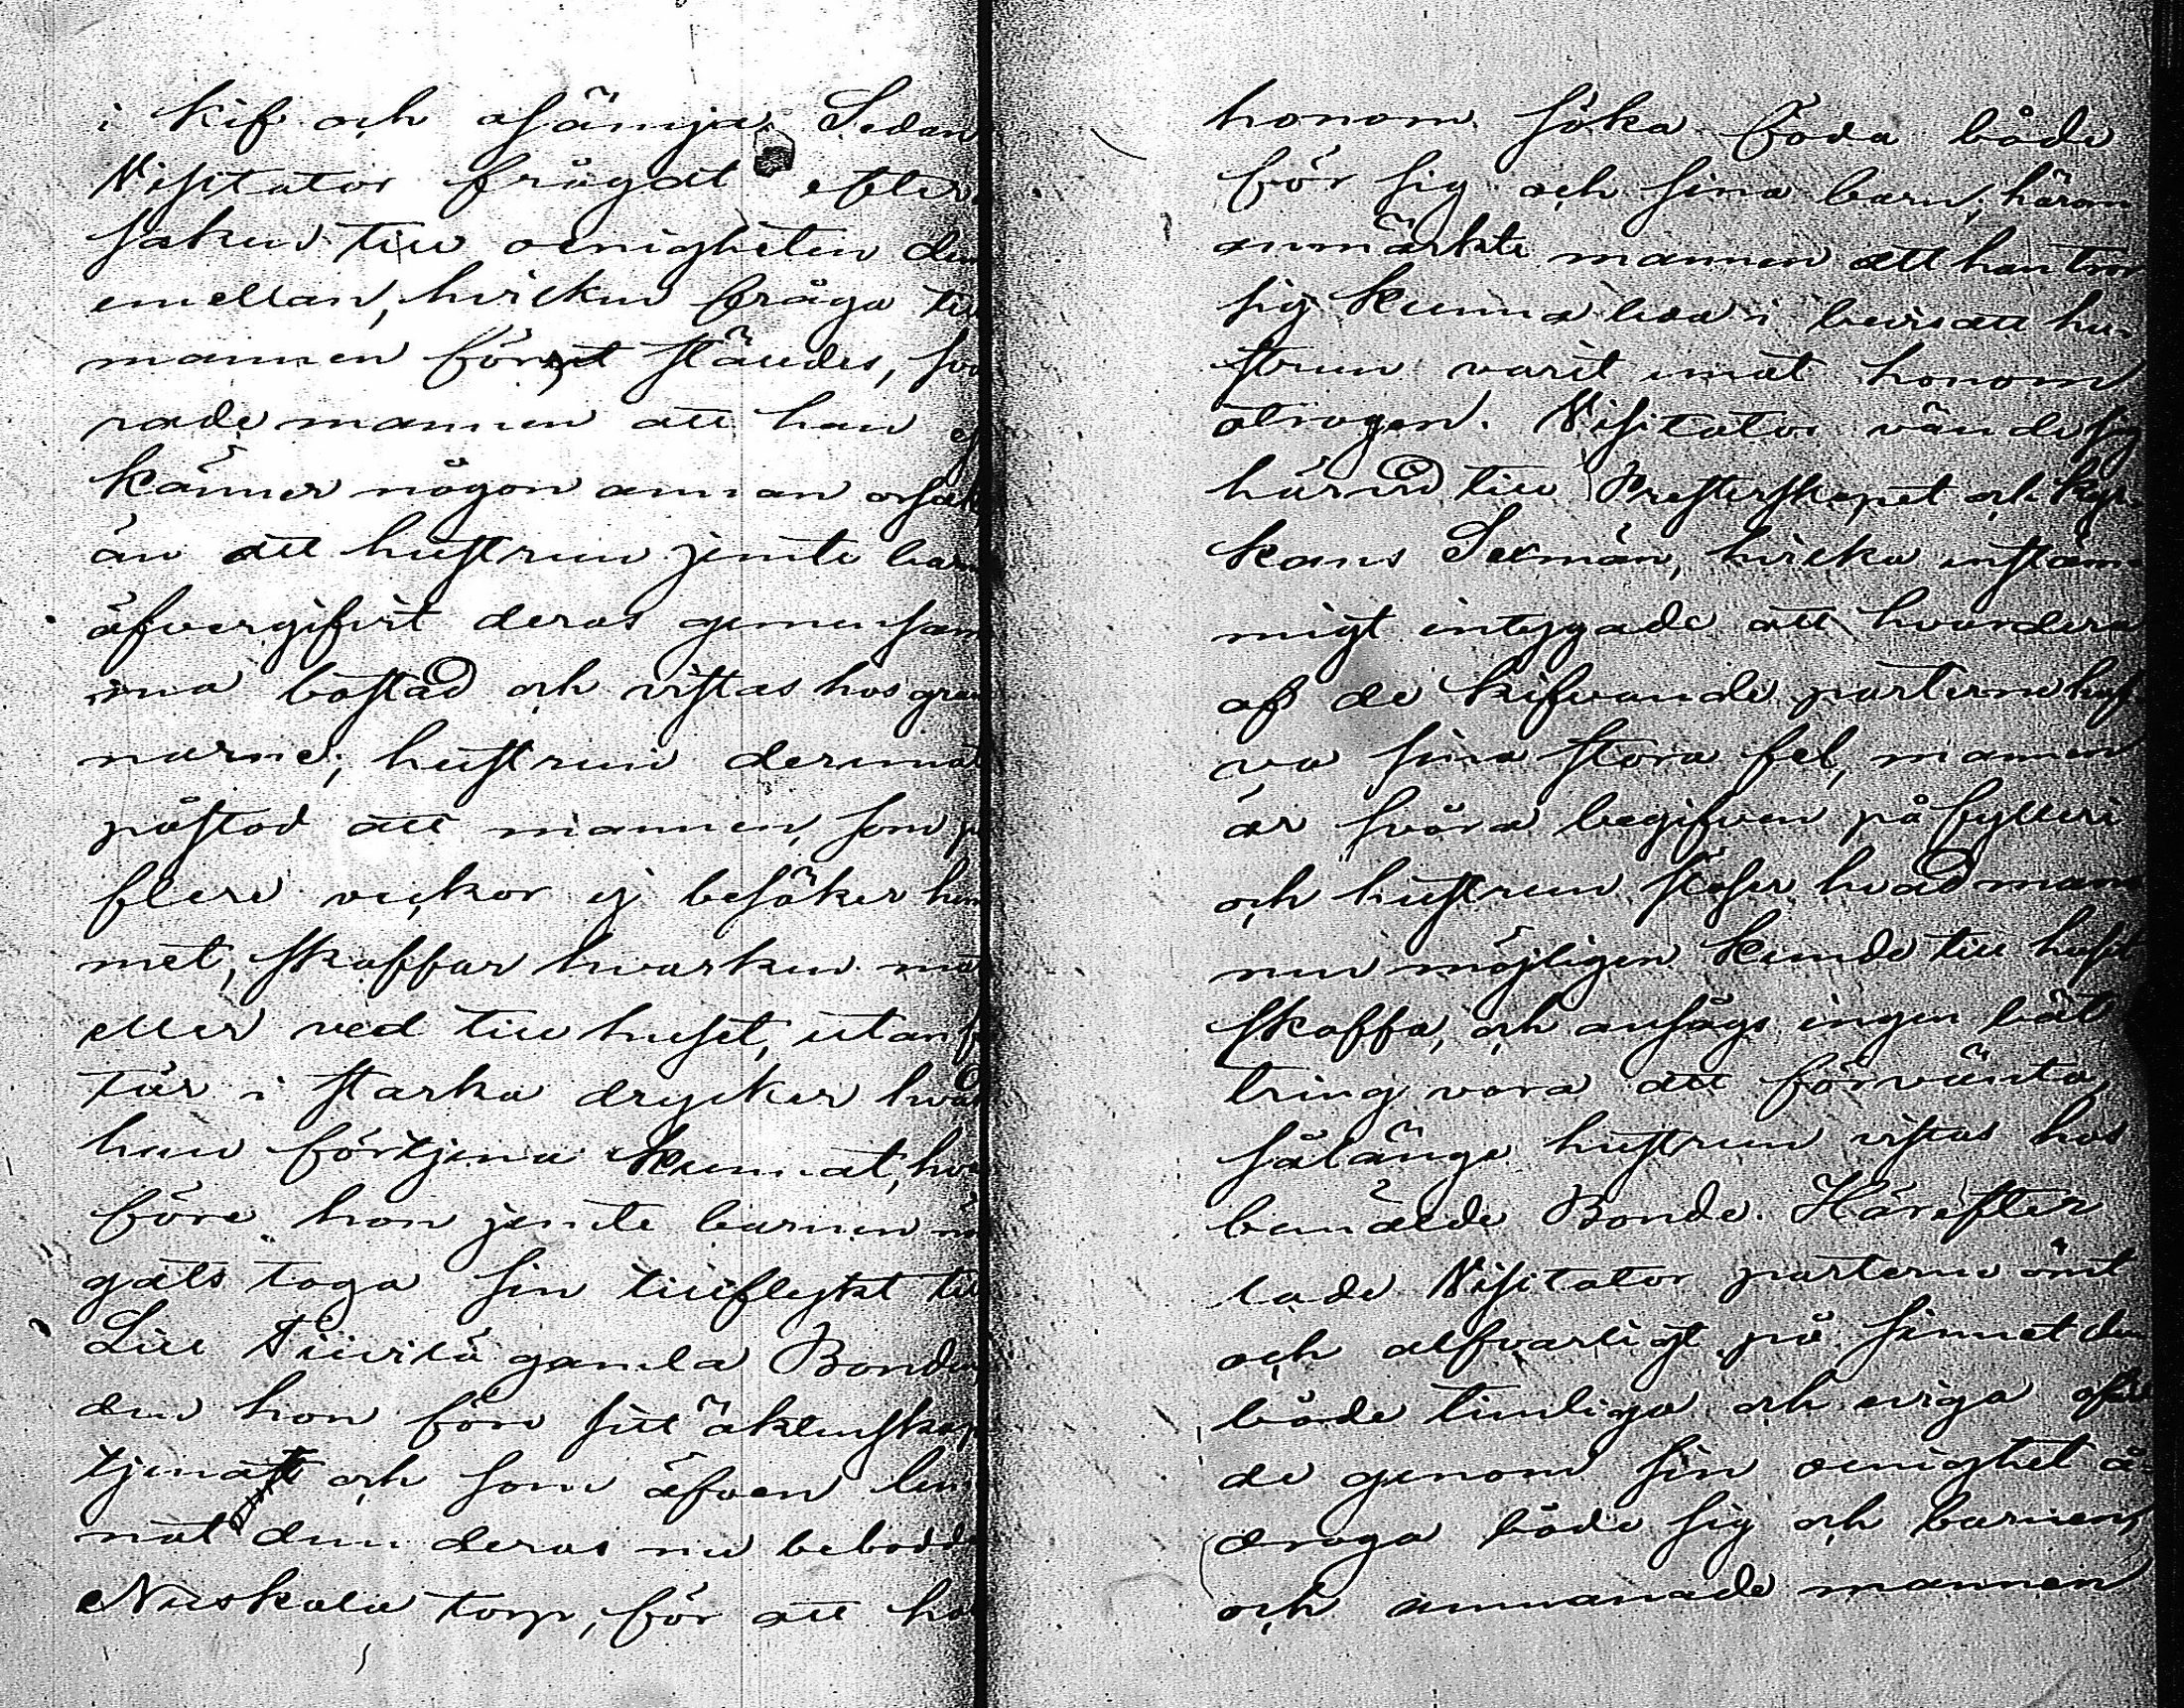 i kif och osämja. Sedan
Visitator frågat efter
saken till oenigheten dem
emellan, hvilken fråga till
mannen först ställdes, sva
rade mannen att han ej
känner någon annan orsak
än att hustrun jemte barn
öfvergifvit deras gemensam
ma bostad och vistas hos gran
narne; hustrun derimot
påstod att mannen, som på
flere veckor ej besöker hem
met, skaffar hvarken mat
eller ved till huset, utan
tär i starka drycker hvad
han förtjena kunnat, hvar
före hon jemte barnen nö
gats taga sin tillflykt till
Lill gamla Bonden
den hon före sitt äktenskap
tjenat och som äfven lem
nat dem deras nu bebodda
Niiskala torp, för att hos
honom söka föda både
för sig och sina barn; härom
anmärkte mannen att han tror
sig kunna leda i bevis att hu-
strun varit emot honom
otrogen. Visitator vände sig
härvid till Presterskapet och kyr-
kans Sexmän, hvilka enstäm-
migt intygade att hvardera
af de kifvande parterna haf
va sina stora fel, mannen
är svåra begifven på fylleri
och hustrun slöser hvad man
nen möjligen kunde till huset
skaffa, och ansågs ingen bät
tring vara att förvänta,
sålänge hustrun vistas hos
bemälde Bonde. Härefter
lade Visitator parterne ömt
och alfvarligt på sinnet den
både timliga och eviga ofärd
de genom sin oenighet å-
draga både sig och barnen,
och anmanade mannen